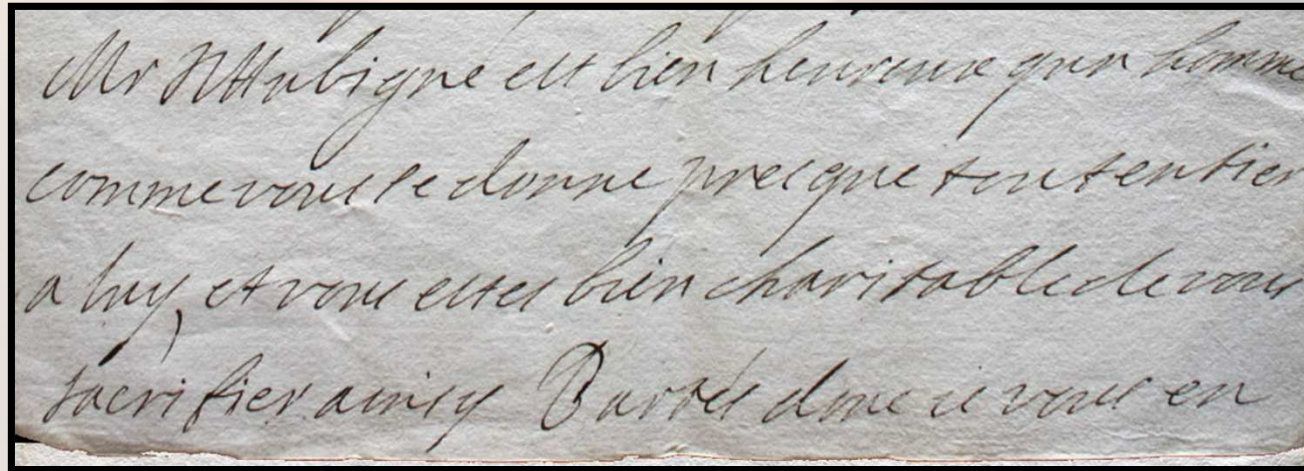 Mr d'Aubigne est bien heureux qun homme
comme vous se donne presque tout entier
a luy, et vous estes bien charitable de vous
sacrifier ainsy Partés donc ie vous en